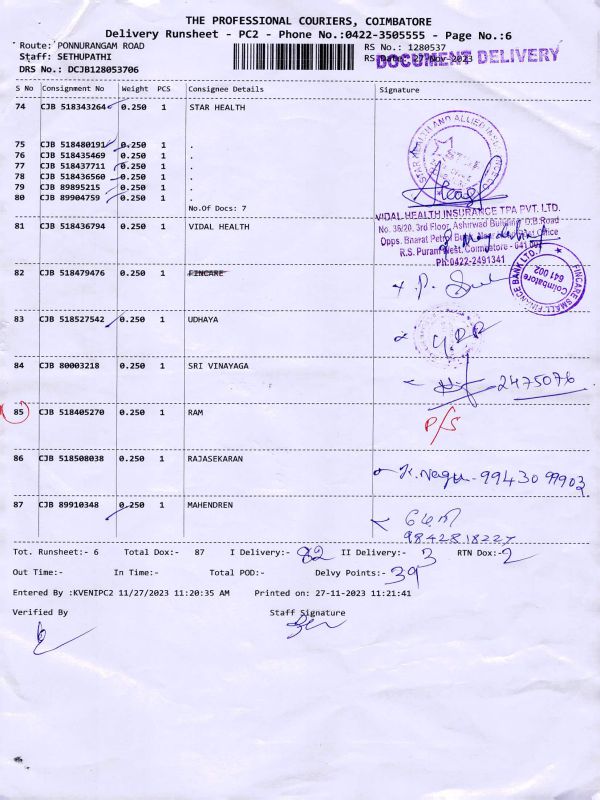 THE PROFESSIONAL COURIERS, COIMBATORE
Delivery Runsheet - PC2 - Phone No.:0422-3505555 - Page No.:6
Route: PONNURANGAM ROAD
RS No.: 1280537
Staff: SETHUPATHI
RS Date: 27-Nov-2023
DOCUMENT DELIVERY
DRS No.: DCJB128053706
S No Consignment No Weight PCS Consignee Details Signature
74 CJB 518343264 0.250 1 STAR HEALTH
STAR HEALTH AND ALLIED
75 CJB 518480191 0.250 1 .
76 CJB 518435469 0.250 1 .
77 CJB 518437711 0.250 1 .
78 CJB 518436560 0.250 1 .
79 CJB 89895215 0.250 1 .
80 CJB 89904759 0.250 1 .
No.Of Docs: 7
VIDAL HEALTH INSURANCE TPA PVT. LTD.
No. 38/20, 3rd Floor, Ashirwad Building, D.B.Road
81 CJB 518436794 0.250 1 VIDAL HEALTH
Opps. Bharat Petrol Bunk, Near Office
R.S. Puram West, Coimbatore - 641 002
Ph:0422-2491341
82 CJB 518479476 0.250 1 FINCARE
P.
FINCARE SMALL FINANCE BANK LTD.
Coimbatore
641 002
83 CJB 518527542 0.250 1 UDHAYA
84 CJB 80003218 0.250 1 SRI VINAYAGA
2475076
85 CJB 518405270 0.250 1 RAM
P/S
86 CJB 518508038 0.250 1 RAJASEKARAN
K.Nagu - 99430 99903
87 CJB 89910348 0.250 1 MAHENDREN
9842818227
Tot. Runsheet:- 6 Total Dox:- 87 I Delivery:- 82 II Delivery:- 3 RTN Dox:- 2
Out Time:- In Time:- Total POD:- Delvy Points:- 39
Entered By :KVENIPC2 11/27/2023 11:20:35 AM Printed on: 27-11-2023 11:21:41
Verified By Staff Signature